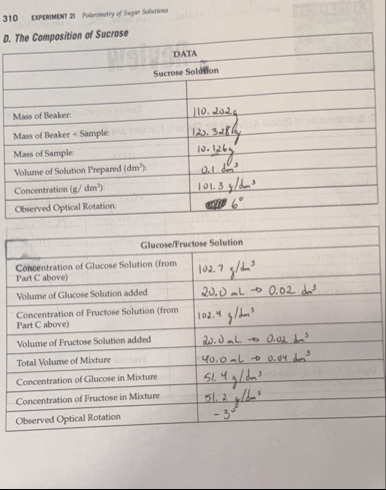 310 EXPERIMENT 21 Polarimetry of Sugar Solutions
D. The Composition of Sucrose
DATA
Sucrose Solution
Mass of Beaker: 110.202g
Mass of Beaker + Sample: 120.328g
Mass of Sample: 10.126g
Volume of Solution Prepared (dm³): 0.1 dm³
Concentration (g/ dm³): 101.3 g/dm³
Observed Optical Rotation: 6°
Glucose/Fructose Solution
Concentration of Glucose Solution (from
Part C above) 102.7 g/dm³
Volume of Glucose Solution added 20.0 mL → 0.02 dm³
Concentration of Fructose Solution (from
Part C above) 102.4 g/dm³
Volume of Fructose Solution added 20.0 mL → 0.02 dm³
Total Volume of Mixture 40.0 mL → 0.04 dm³
Concentration of Glucose in Mixture 51.4 g/dm³
Concentration of Fructose in Mixture 51.2 g/dm³
Observed Optical Rotation -3°